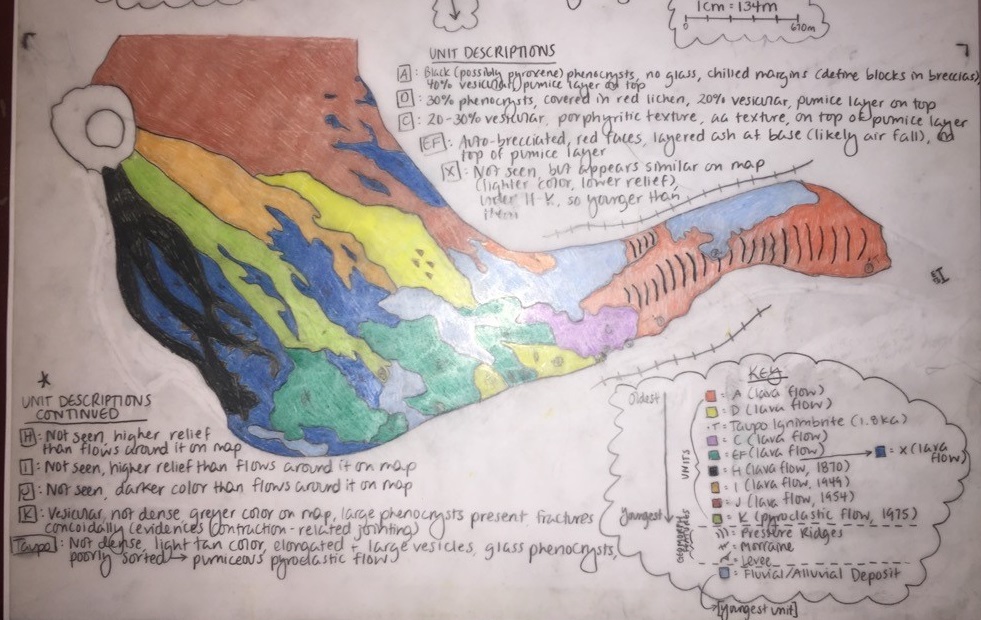 1cm = 134m
0
670m
UNIT DESCRIPTIONS
A: Black (possibly pyroxene) phenocrysts, no glass, chilled margins (define blocks in breccias),
40% vesicular, pumice layer on top
D: 30% phenocrysts, covered in red lichen, 20% vesicular, pumice layer on top
C: 20-30% vesicular, porphyritic texture, aa texture, on top of pumice layer
EF: Auto-brecciated, red faces, layered ash at base (likely air fall),
top of pumice layer
X: Not seen, but appears similar on map
(lighter color, lower relief),
under H-K, so younger than
them
*
UNIT DESCRIPTIONS
CONTINUED
H: Not seen, higher relief
than flows around it on map
I: Not seen, higher relief than flows around it on map
J: Not seen, darker color than flows around it on map
K: Vesicular, not dense, greyer color on map, large phenocrysts present, fractures
concoidally (evidences contraction-related jointing)
Taupo: Not dense, light tan color, elongated + large vesicles, glass phenocrysts,
poorly sorted → pumiceous pyroclastic flow
KEY
Oldest
UNITS
Youngest
: A (lava flow)
: D (lava flow)
T: Taupo Ignimbrite (1.8ka)
: C (lava flow)
: EF (lava flow) → : X (lava flow)
: H (lava flow, 1870)
: I (lava flow, 1949)
: J (lava flow, 1954)
: K (pyroclastic flow, 1975)
: Pressure Ridges
: Morraine
: Levee
: Fluvial/Alluvial Deposit
[youngest unit]